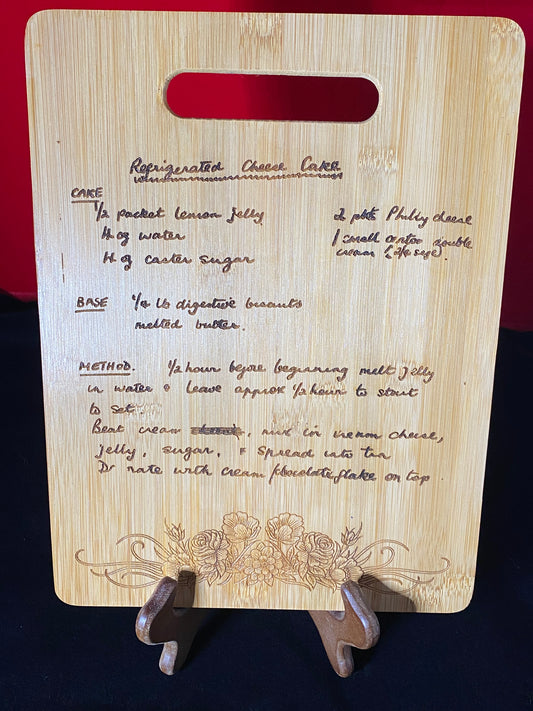 Refrigerated Cheese Cake
CAKE
1/2 packet lemon jelly
4 oz water
4 oz caster sugar
2 pkts Philly cheese
1 small carton double
cream
BASE 1/4 lb digestive biscuits
melted butter.
METHOD. 1/2 hour before beginning melt jelly
in water & leave approx 1/2 hour to start
to set.
Beat cream , mix in cream cheese,
jelly, sugar, & spread into tin
with cream /chocolate flake on top